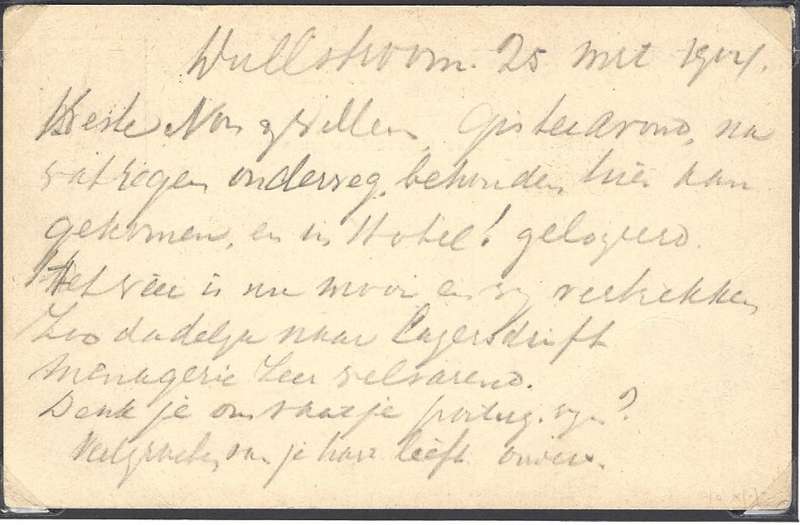 Dullstroom. 25 Mrt 1904.
Beste Non & Willem, Gisteravond, na
wat regen onderweg, behouden hier aan
gekomen, en in Hotel! gelogeerd.
Het weer is nu mooi en wij vertrekken
zoo dadelijk naar Lagersdrift
Menagerie zeer welvarend.
Denk je om vaatje portug. wijn?
Veel groeten van je heer